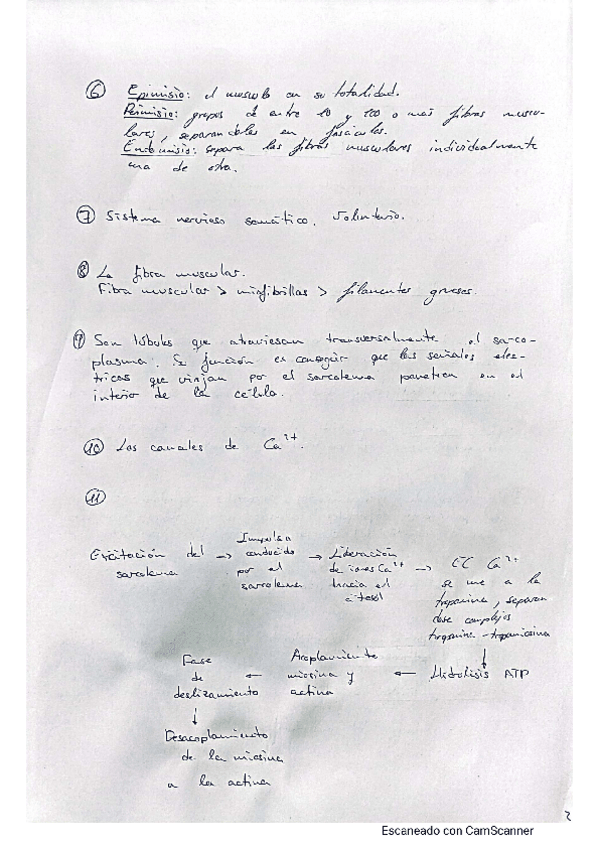 ⑥ Epimisio: el musculo en su totalidad.
Perimisio: grupos de entre 10 y 100 o más fibras muscu-
lares, separandoles en fasículos.
Endomisio: separa las fibras musculares individualmente
una de otra.
⑦ Sistema nervioso somático. Voluntario.
⑧ La fibra muscular.
Fibra muscular > miofibrillas > filamentos gruesos.
⑨ Son túbulos que atraviesan transversalmente el sarco-
plasma. Su función es conseguir que las señales eléc-
tricas que viajan por el sarcolema penetren en el
interior de la célula.
⑩ Los canales de Ca²⁺.
⑪
Excitación del sarcolema → Impulso conducido por el sarcolema → Liberación de iones Ca²⁺ hacia el citosol → El Ca²⁺
se une a la
troponina, separan
dose complejos
troponina-tropomiosina
↓
Hidrólisis ATP
← Acoplamiento
miosina y
actina
← Fase
de
deslizamiento
↓
Desacoplamiento
de la miosina
a la actina
2
Escaneado con CamScanner